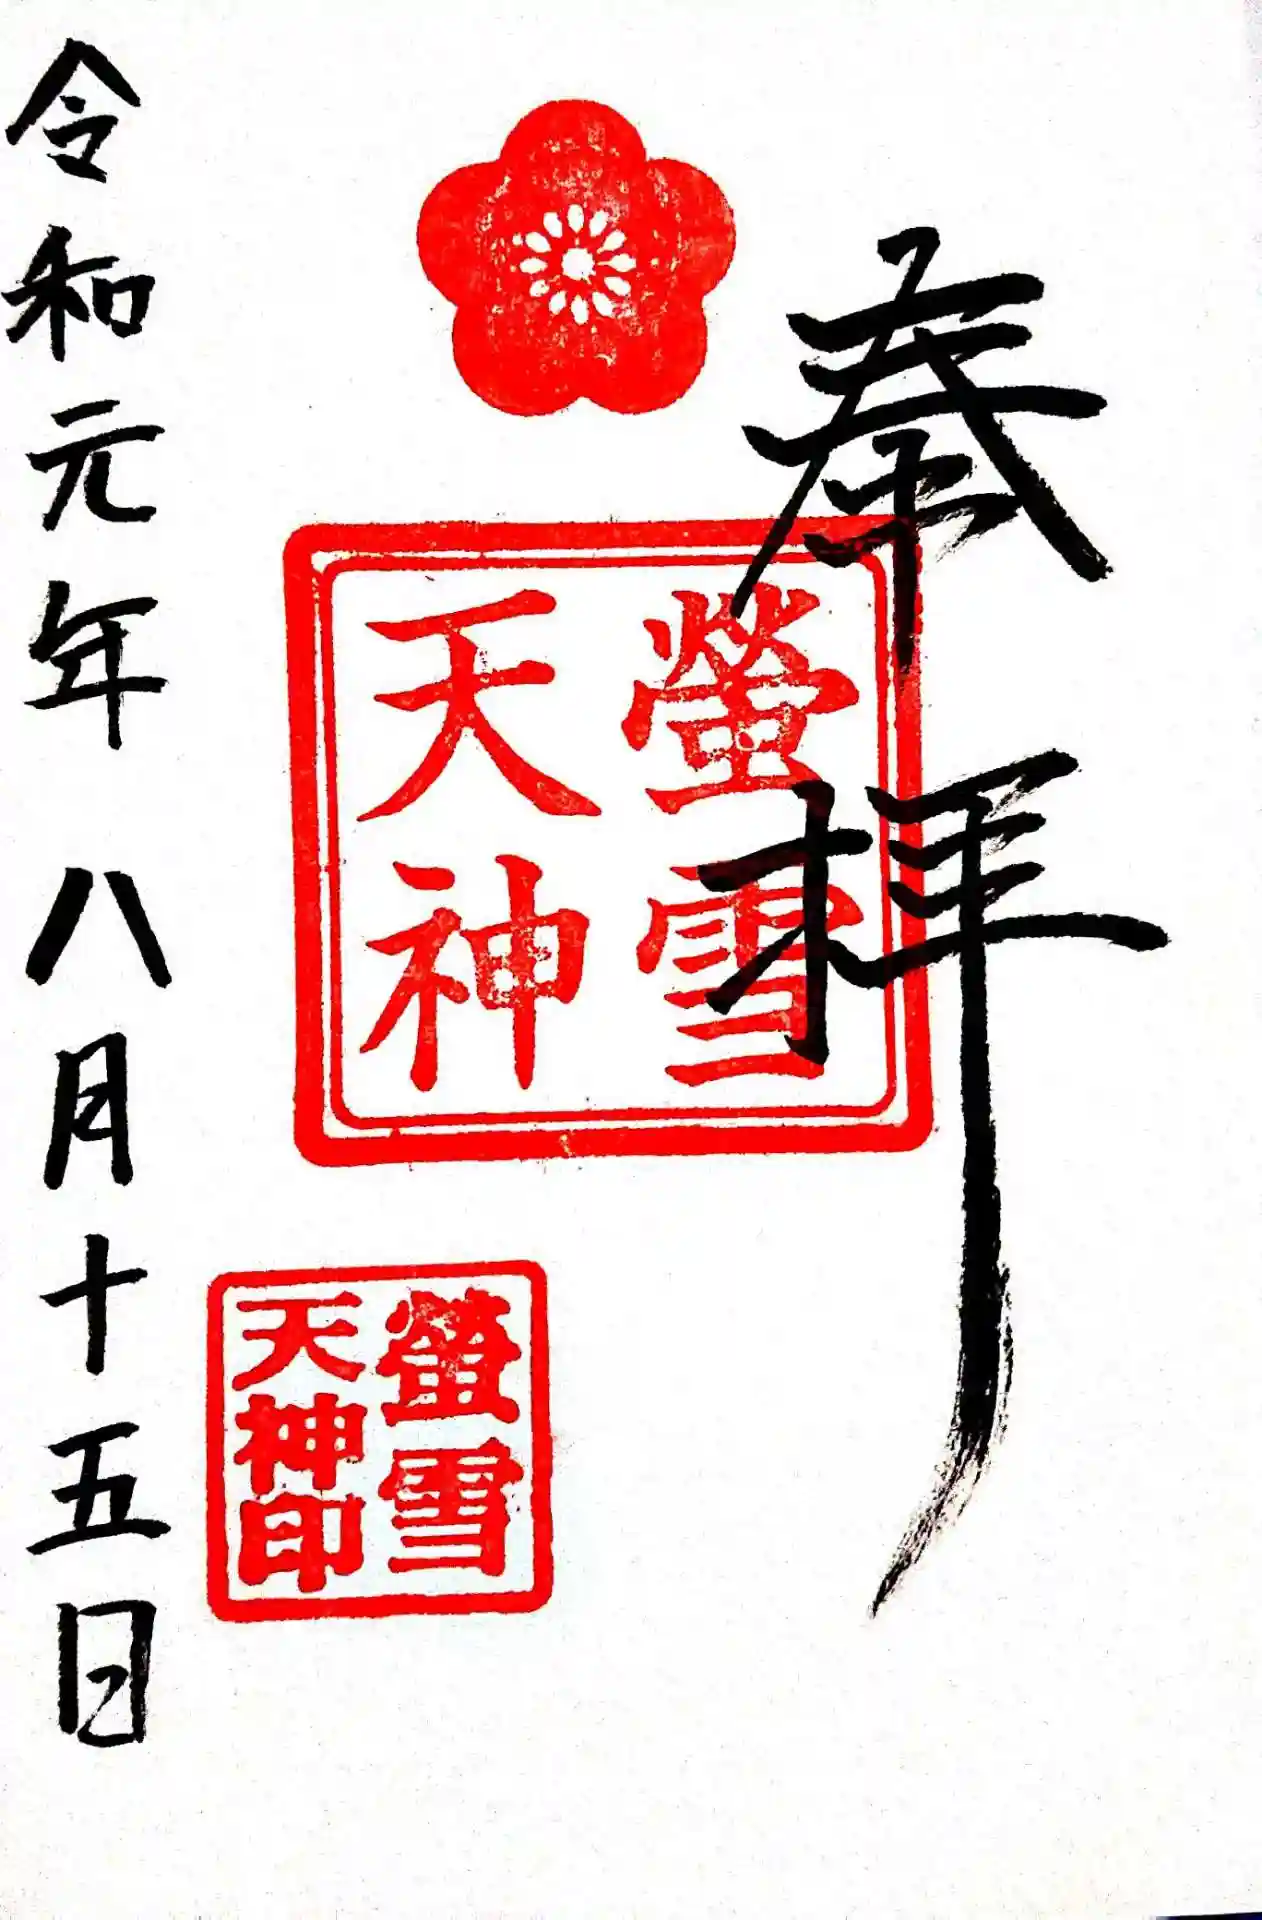 奉拝
螢雪
天神
螢雪
天神印
令和元年八月十五日